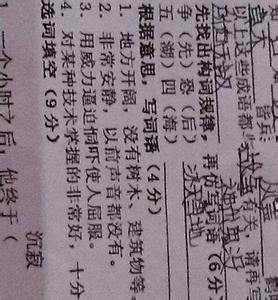 皆兵
以上这些成语都与 有关，请再写
先找出构词规律，再仿写词语（6分）
争（先）恐（后）
五（湖）四（海）
根据意思，写词语（4分）
1. 地方开阔，没有树木、建筑物等。
2. 非常安静，以前声音都没有。
3. 用威力逼迫恫吓使人屈服。
4. 对某种技术掌握的非常好，十分
选词填空（9分）
沉寂
1. 一个小时之后，他终于（